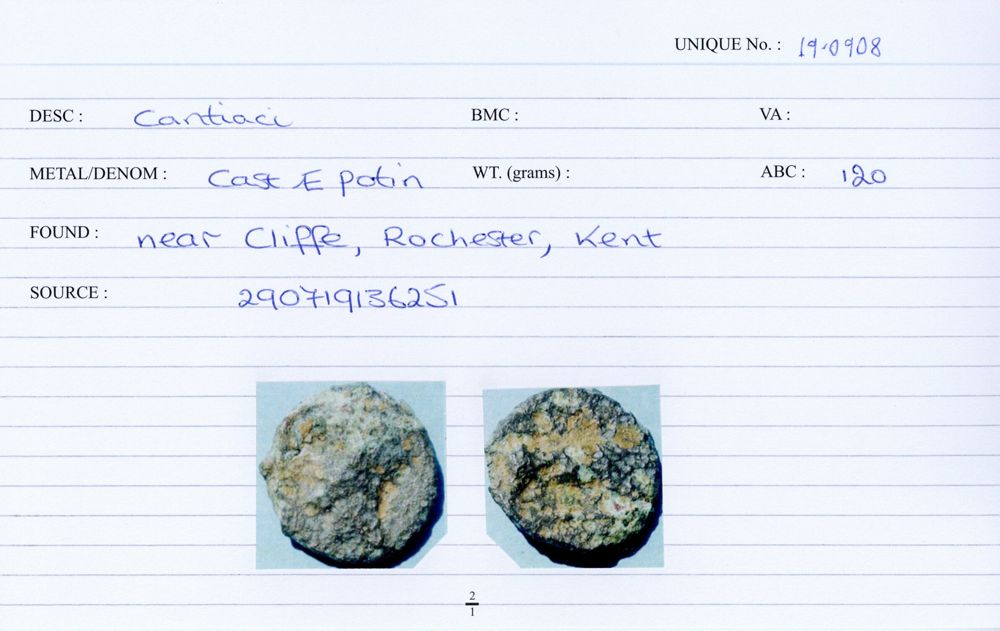 UNIQUE No. : 19-0908
DESC : Cantiaci BMC : VA :
METAL/DENOM : Cast Æ Potin WT. (grams) : ABC : 120
FOUND : near Cliffe, Rochester, Kent
SOURCE : 290719136251
2
1